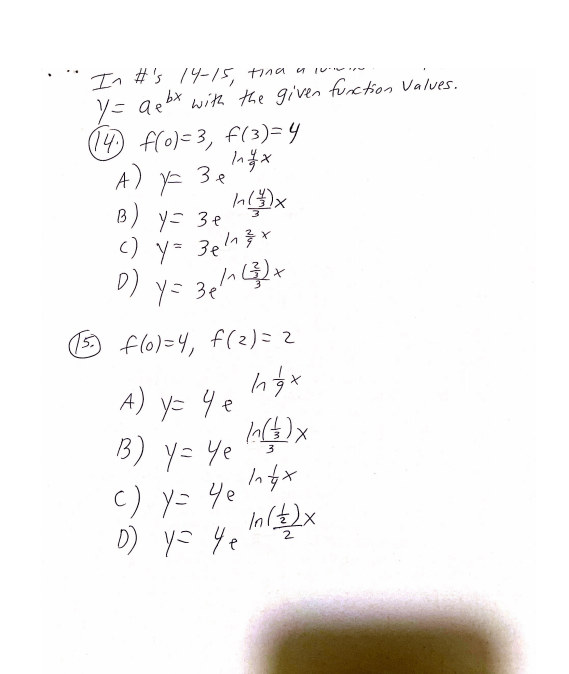 In #'s 14-15, find a
y = ae^bx with the given function values.
14. f(0)=3, f(3)=4
A) y = 3e^ln 4/9 x
B) y = 3e^ln(4/3)/3 x
C) y = 3e^ln 2/9 x
D) y = 3e^ln(2/3)/3 x
15. f(0)=4, f(2)=2
A) y = 4e^ln 1/9 x
B) y = 4e^ln(1/3)/3 x
C) y = 4e^ln 1/4 x
D) y = 4e^ln(1/2)/2 x